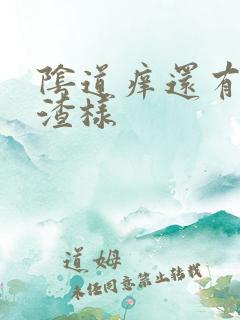 陰道痒還有
渣樣
道姆
未经同意禁止转载